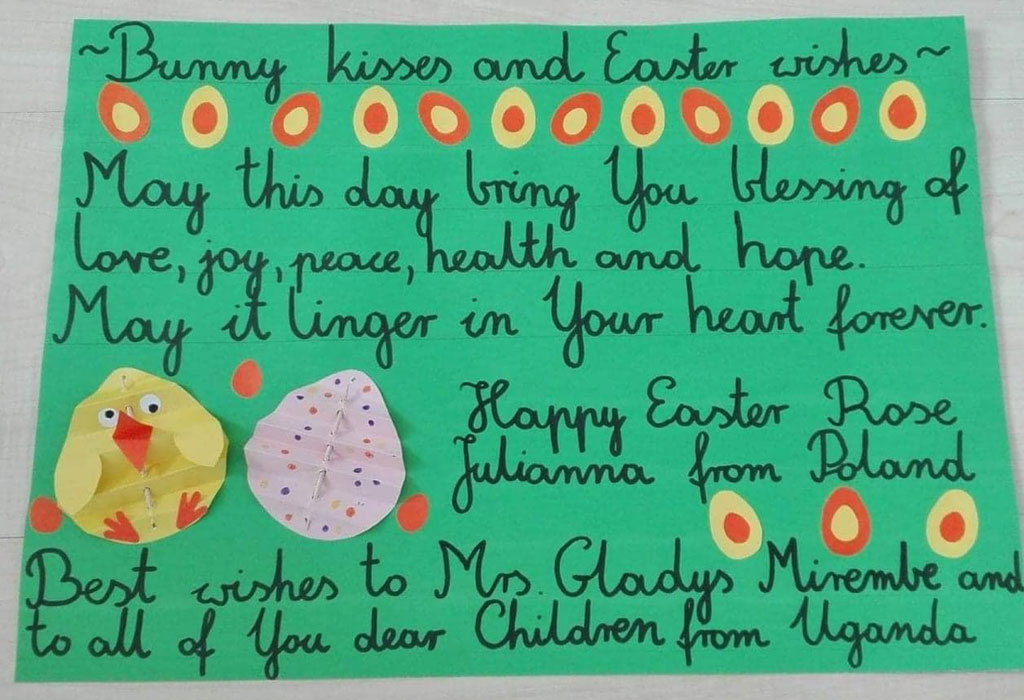 ~Bunny kisses and Easter wishes~
May this day bring You blessing of
love, joy, peace, health and hope.
May it linger in Your heart forever.
Happy Easter Rose
Julianna from Poland
Best wishes to Mrs. Gladys Mirembe and
to all of You dear Children from Uganda